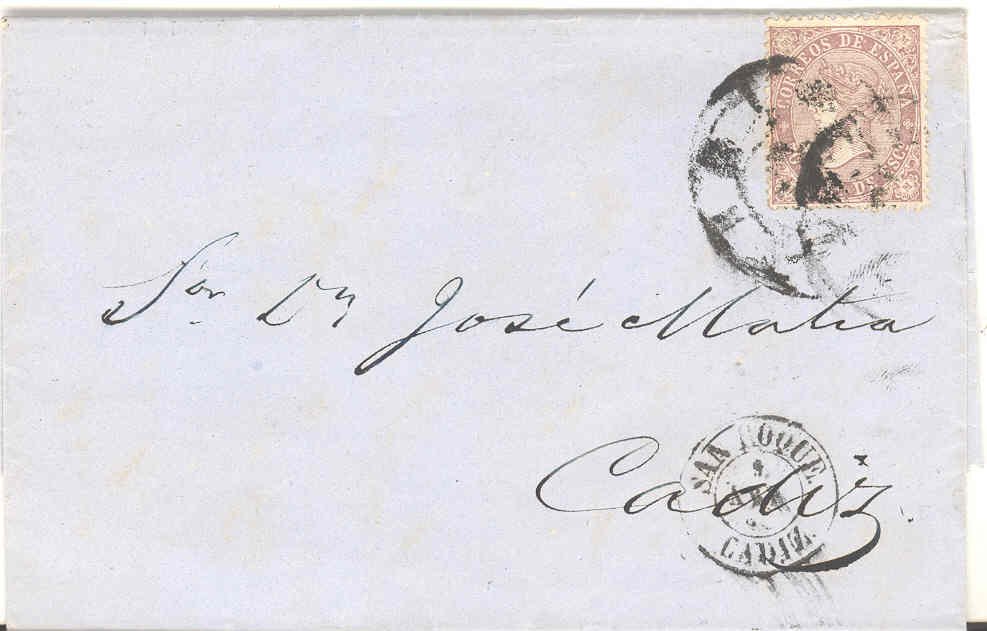 CORREOS DE ESPAÑA
DE ESC
Sor Dn José Matia
Cadiz.
SAN ROQUE
CADIZ